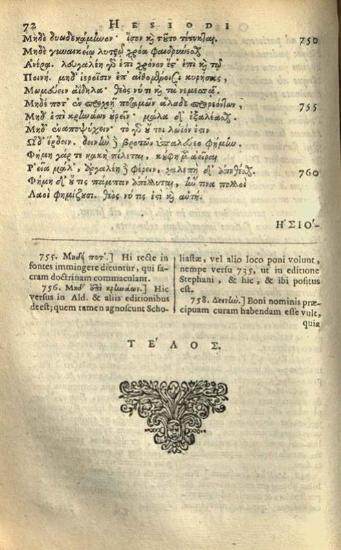 72 HESIODI
Μηδὲ δυωδεκάμηνον· ἶσον καὶ τοῦτο τέτυκται. 750
Μηδὲ γυναικείῳ λουτρῷ χρόα φαιδρύνεσθαι
Ἀνέρα. λευγαλέη γὰρ ἐπὶ χρόνον ἔς' ἐπὶ καὶ τῷ
Ποινή. μηδ' ἱεροῖσιν ἐπ' αἰθομένοισι κυρήσας,
Μωμεύειν ἀΐδηλα· θεός νύ τι καὶ τὰ νεμεσσᾷ.
Μηδέ ποτ' ἐν προχοῇ ποταμῶν ἅλαδε προρεόντων, 755
Μηδ' ἐπὶ κρηνάων οὐρεῖν· μάλα δ' ἐξαλέασθαι.
Μηδ' ἐναποψύχειν· τὸ γὰρ οὔ τοι λώϊόν ἐστιν.
Ὧδ' ἔρδειν. δεινὴν δὲ βροτῶν ὑπαλεύεο φήμην.
Φήμη γάρ τε κακὴ πέλεται, κούφη μὲν ἀεῖραι
Ῥεῖα μάλ', ἀργαλέη δὲ φέρειν, χαλεπὴ δ' ἀποθέσθαι. 760
Φήμη δ' οὔ τις πάμπαν ἀπόλλυται, ἥν τινα πολλοὶ
Λαοὶ φημίζουσι. θεός νύ τις ἐστὶ καὶ αὐτή.
ΗΣΙΟ-
755. Μηδέ ποτ'.] Hi recte in
fontes immingere dicuntur, qui sa-
cram doctrinam commaculant.
756. Μηδ' ἐπὶ κρηνάων.] Hic
versus in Ald. & aliis editionibus
deest; quem tamen agnoscunt Scho-
liastæ, vel alio loco poni volunt,
nempe versu 735, ut in editione
Stephani, & hic, & ibi positus
est.
758. Δεινὴν.] Boni nominis præ-
cipuam curam habendam esse vult,
quia
ΤΕΛΟΣ.